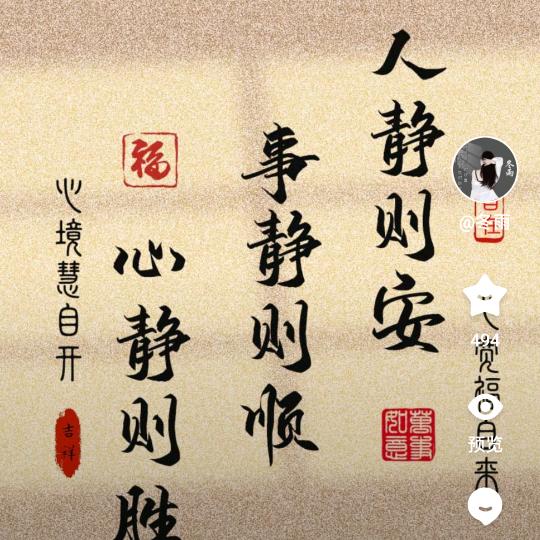 福自来
人静则安
萬事如意
事静则顺
福
心静则胜
心境慧自开
吉祥
冬雨
@冬雨
494
预览